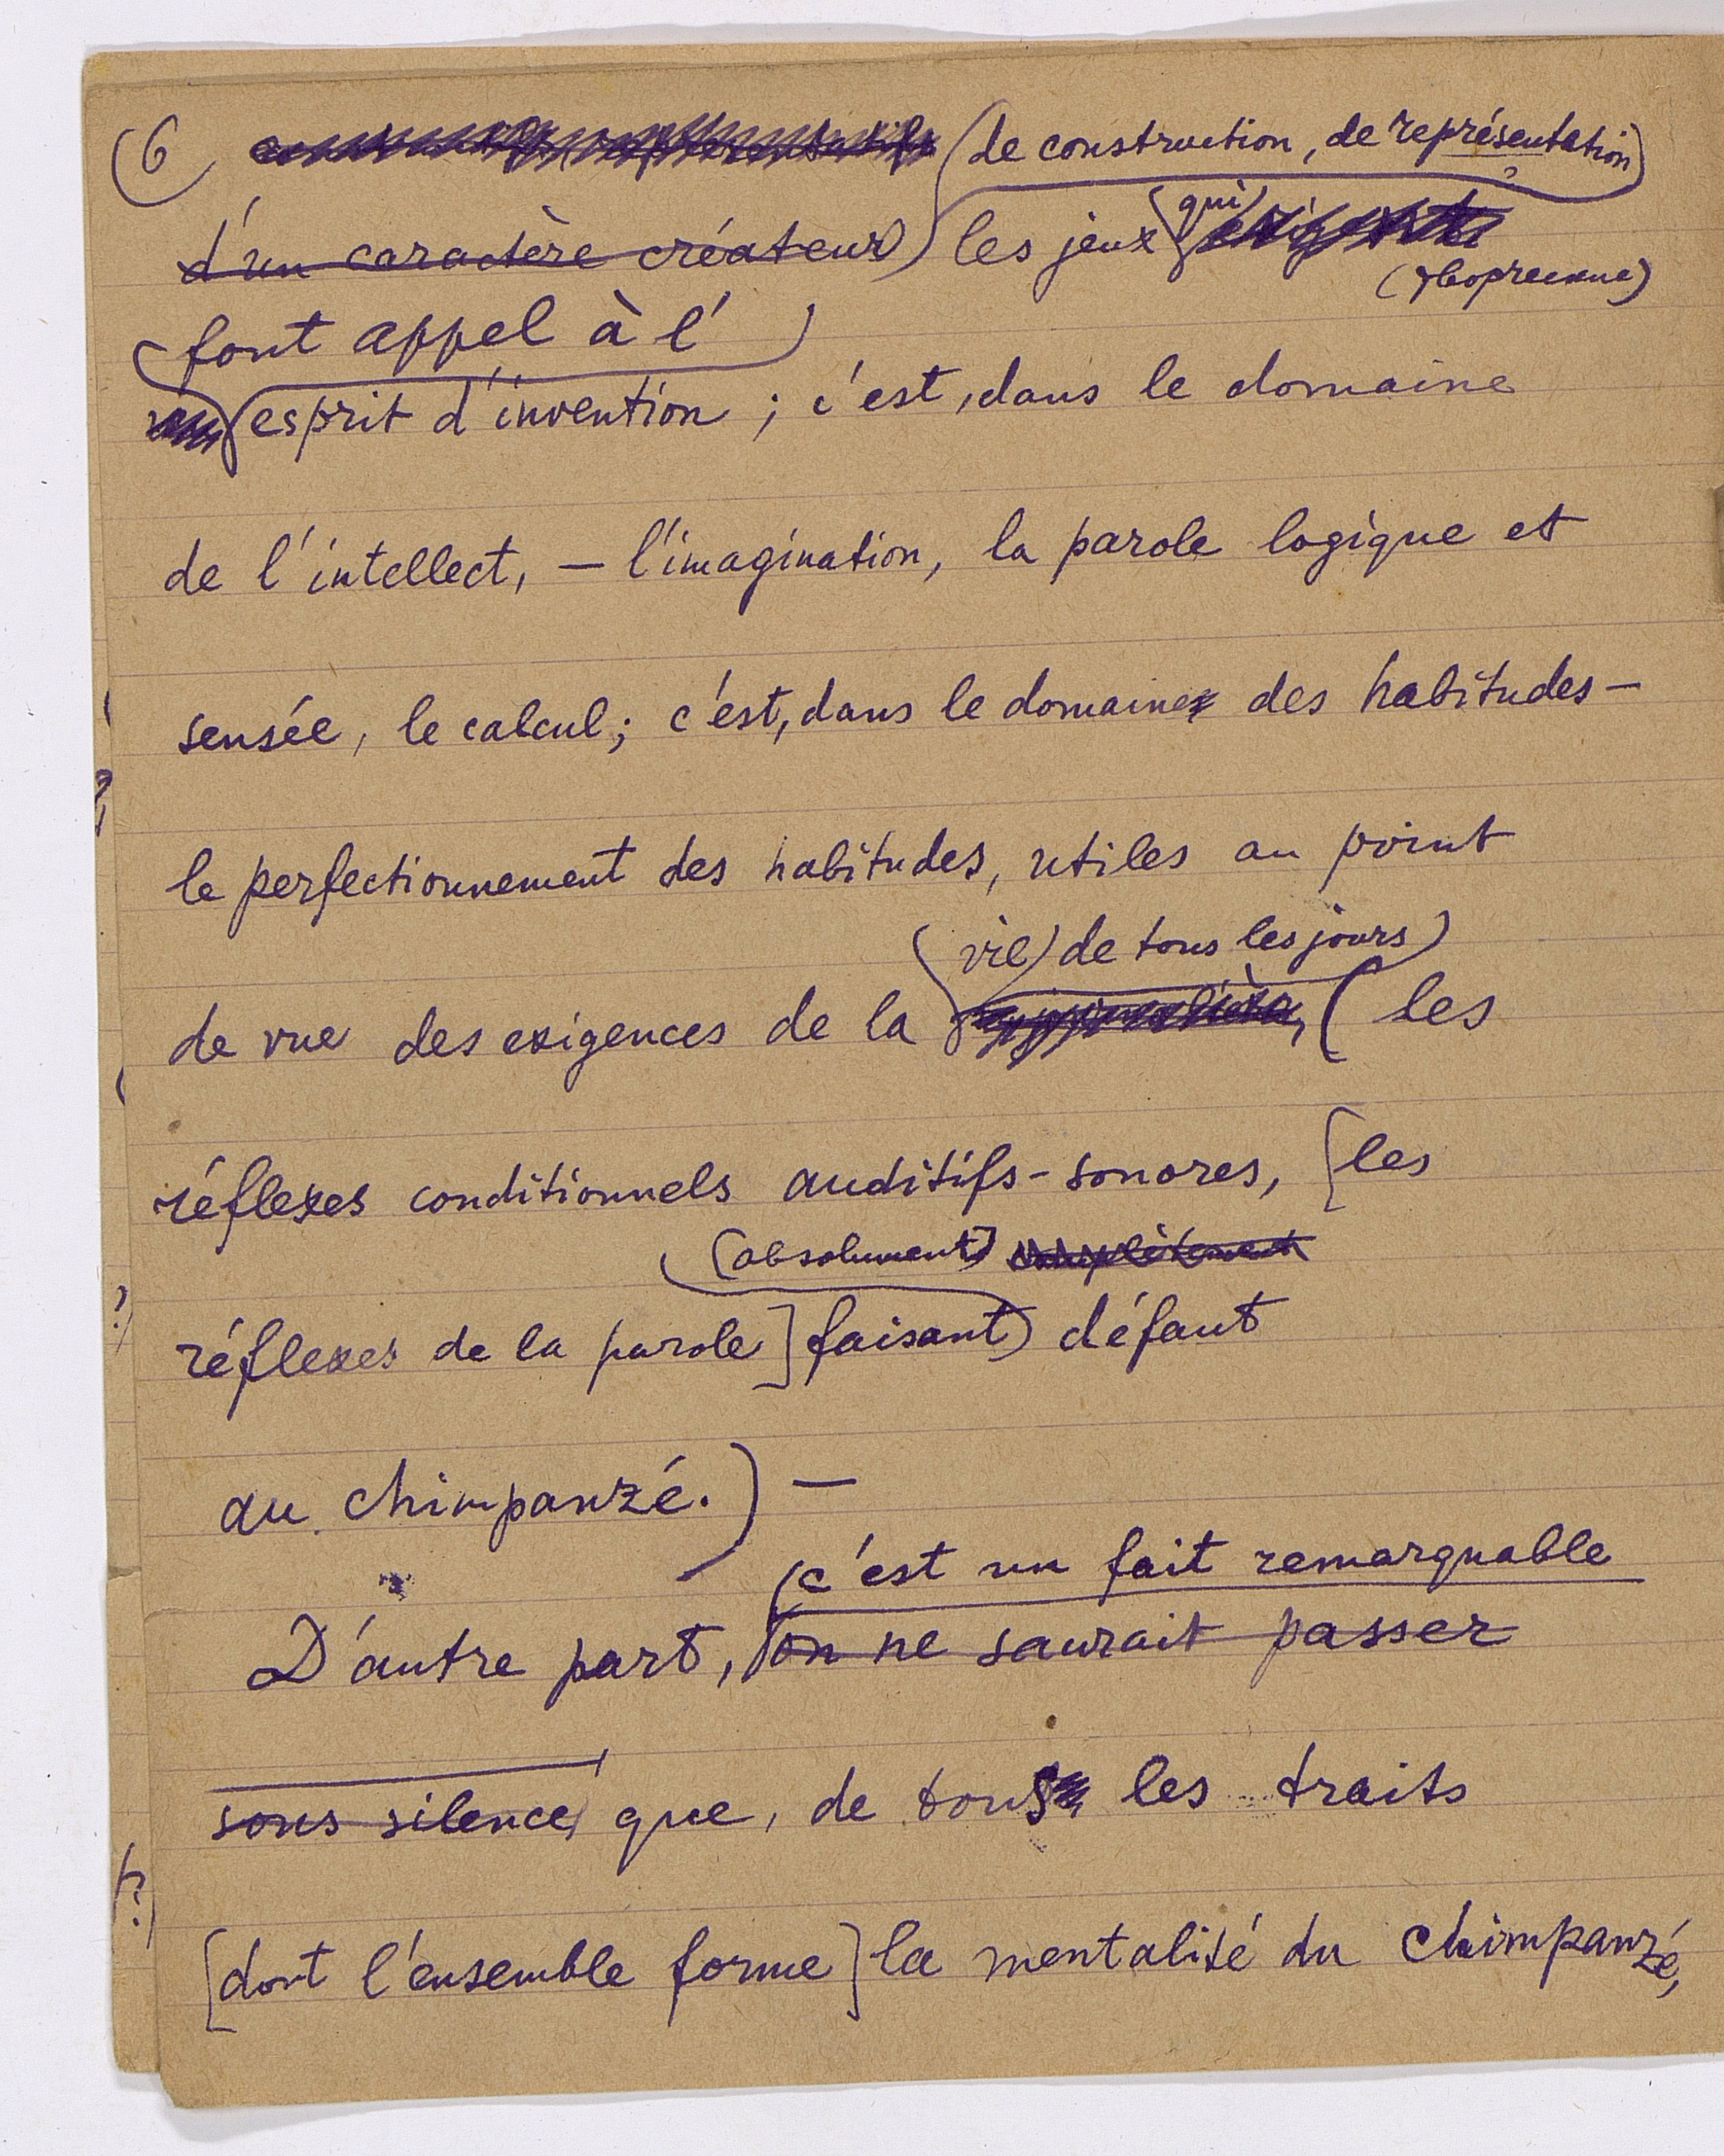 (6 (de construction, de représentation)
d'un caractère créateur) les jeux (qui)
(творческие)
(font appel à l')
esprit d'invention ; c'est, dans le domaine
de l'intellect, — l'imagination, la parole logique et
sensée, le calcul ; c'est, dans le domaine des habitudes —
le perfectionnement des habitudes, utiles au point
(vie) de tous les jours)
de vue des exigences de la (les
réflexes conditionnels auditifs-sonores, [les
(absolument) complètement
réflexes de la parole] faisant) défaut
au chimpanzé.) —
(c'est un fait remarquable
D'autre part, on ne saurait passer
sous silence que, de tous les traits
[dont l'ensemble forme] la mentalité du chimpanzé,